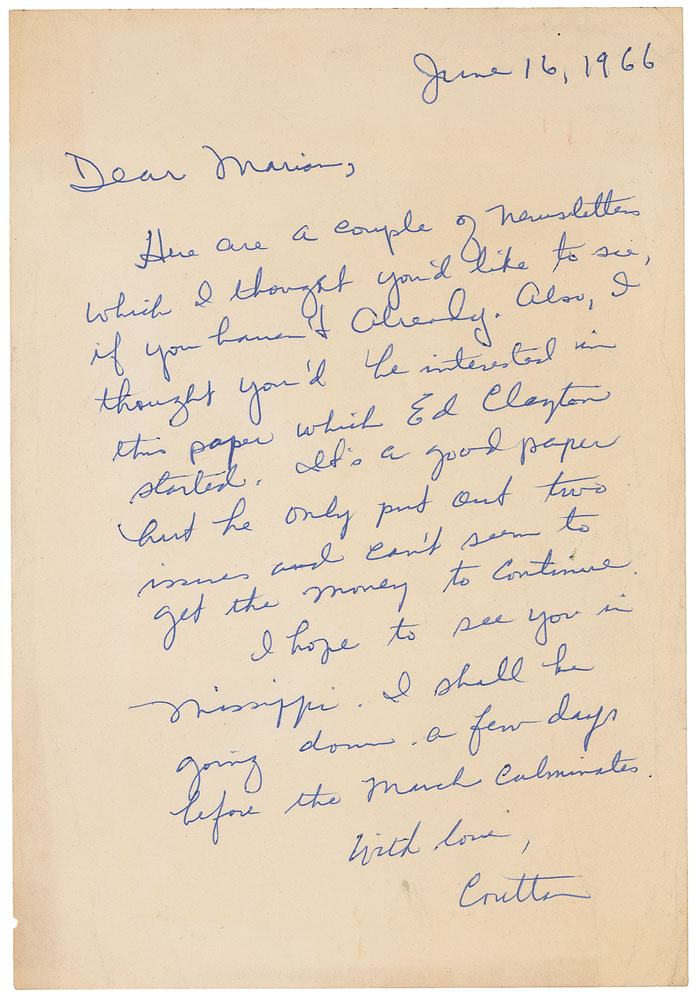 June 16, 1966
Dear Marian,
Here are a couple of newsletters
which I thought you'd like to see,
if you haven't Already. Also, I
thought you'd be interested in
this paper which Ed Clayton
started. It's a good paper
but he only put out two
issues and can't seem to
get the money to continue.
I hope to see you in
Mississippi. I shall be
going down a few days
before the March culminates.
With love,
Coretta